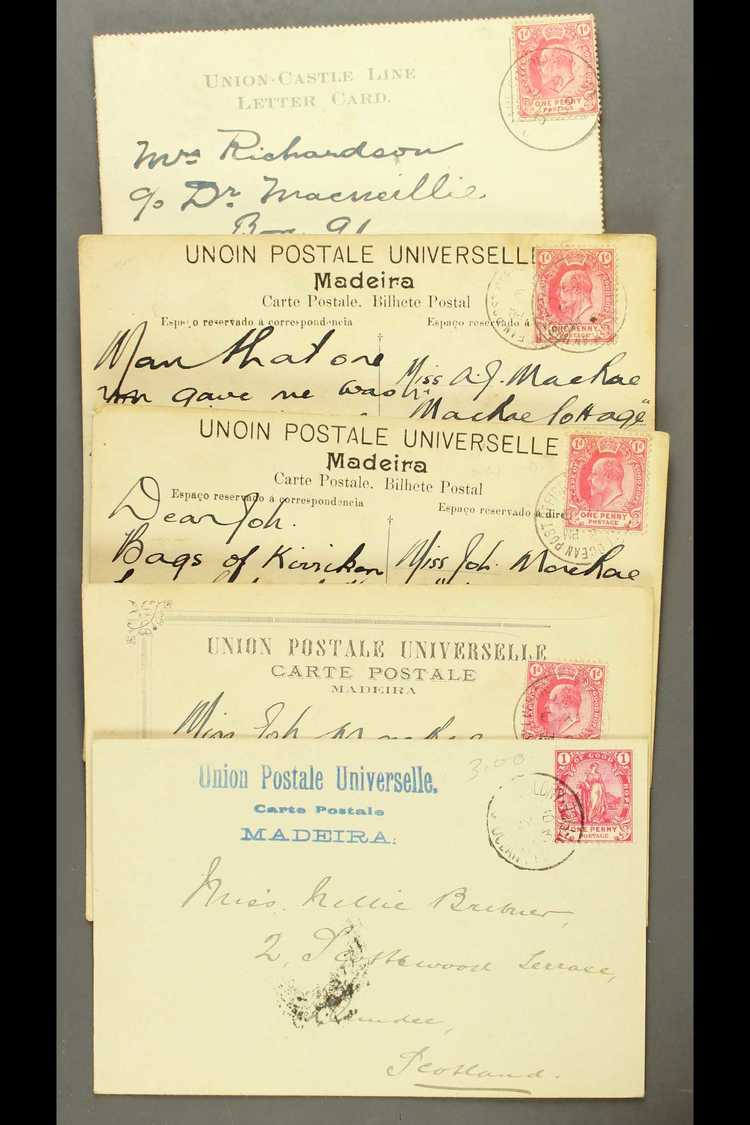 UNION-CASTLE LINE
LETTER CARD.
Mrs Richardson
c/o Dr. Macneillie
Box 91
1d 1d
ONE PENNY
POSTAGE
UNOIN POSTALE UNIVERSELLE
Madeira
Carte Postale. Bilhete Postal
Espaço reservado á correspondencia
Espaço reservado á
1d 1d
ONE PENNY
POSTAGE
Man that one
you gave me was
Miss A. J. MacRae
"MacRae Cottage"
UNOIN POSTALE UNIVERSELLE
Madeira
Carte Postale. Bilhete Postal
Espaço reservado á correspondencia
Espaço reservado á dire
1d 1d
ONE PENNY
POSTAGE
OCEAN POST
Dear Joh.
Bags of
Miss Joh. MacRae
UNION POSTALE UNIVERSELLE
CARTE POSTALE
MADEIRA
1d 1d
ONE PENNY
Miss Joh
Union Postale Universelle.
Carte Postale
MADEIRA.
3.00
1 OF GOOD HOPE 1
ONE PENNY
POSTAGE
OCEAN
Miss. Nellie Bribner,
2,
Terrace,
Dundee,
Scotland.